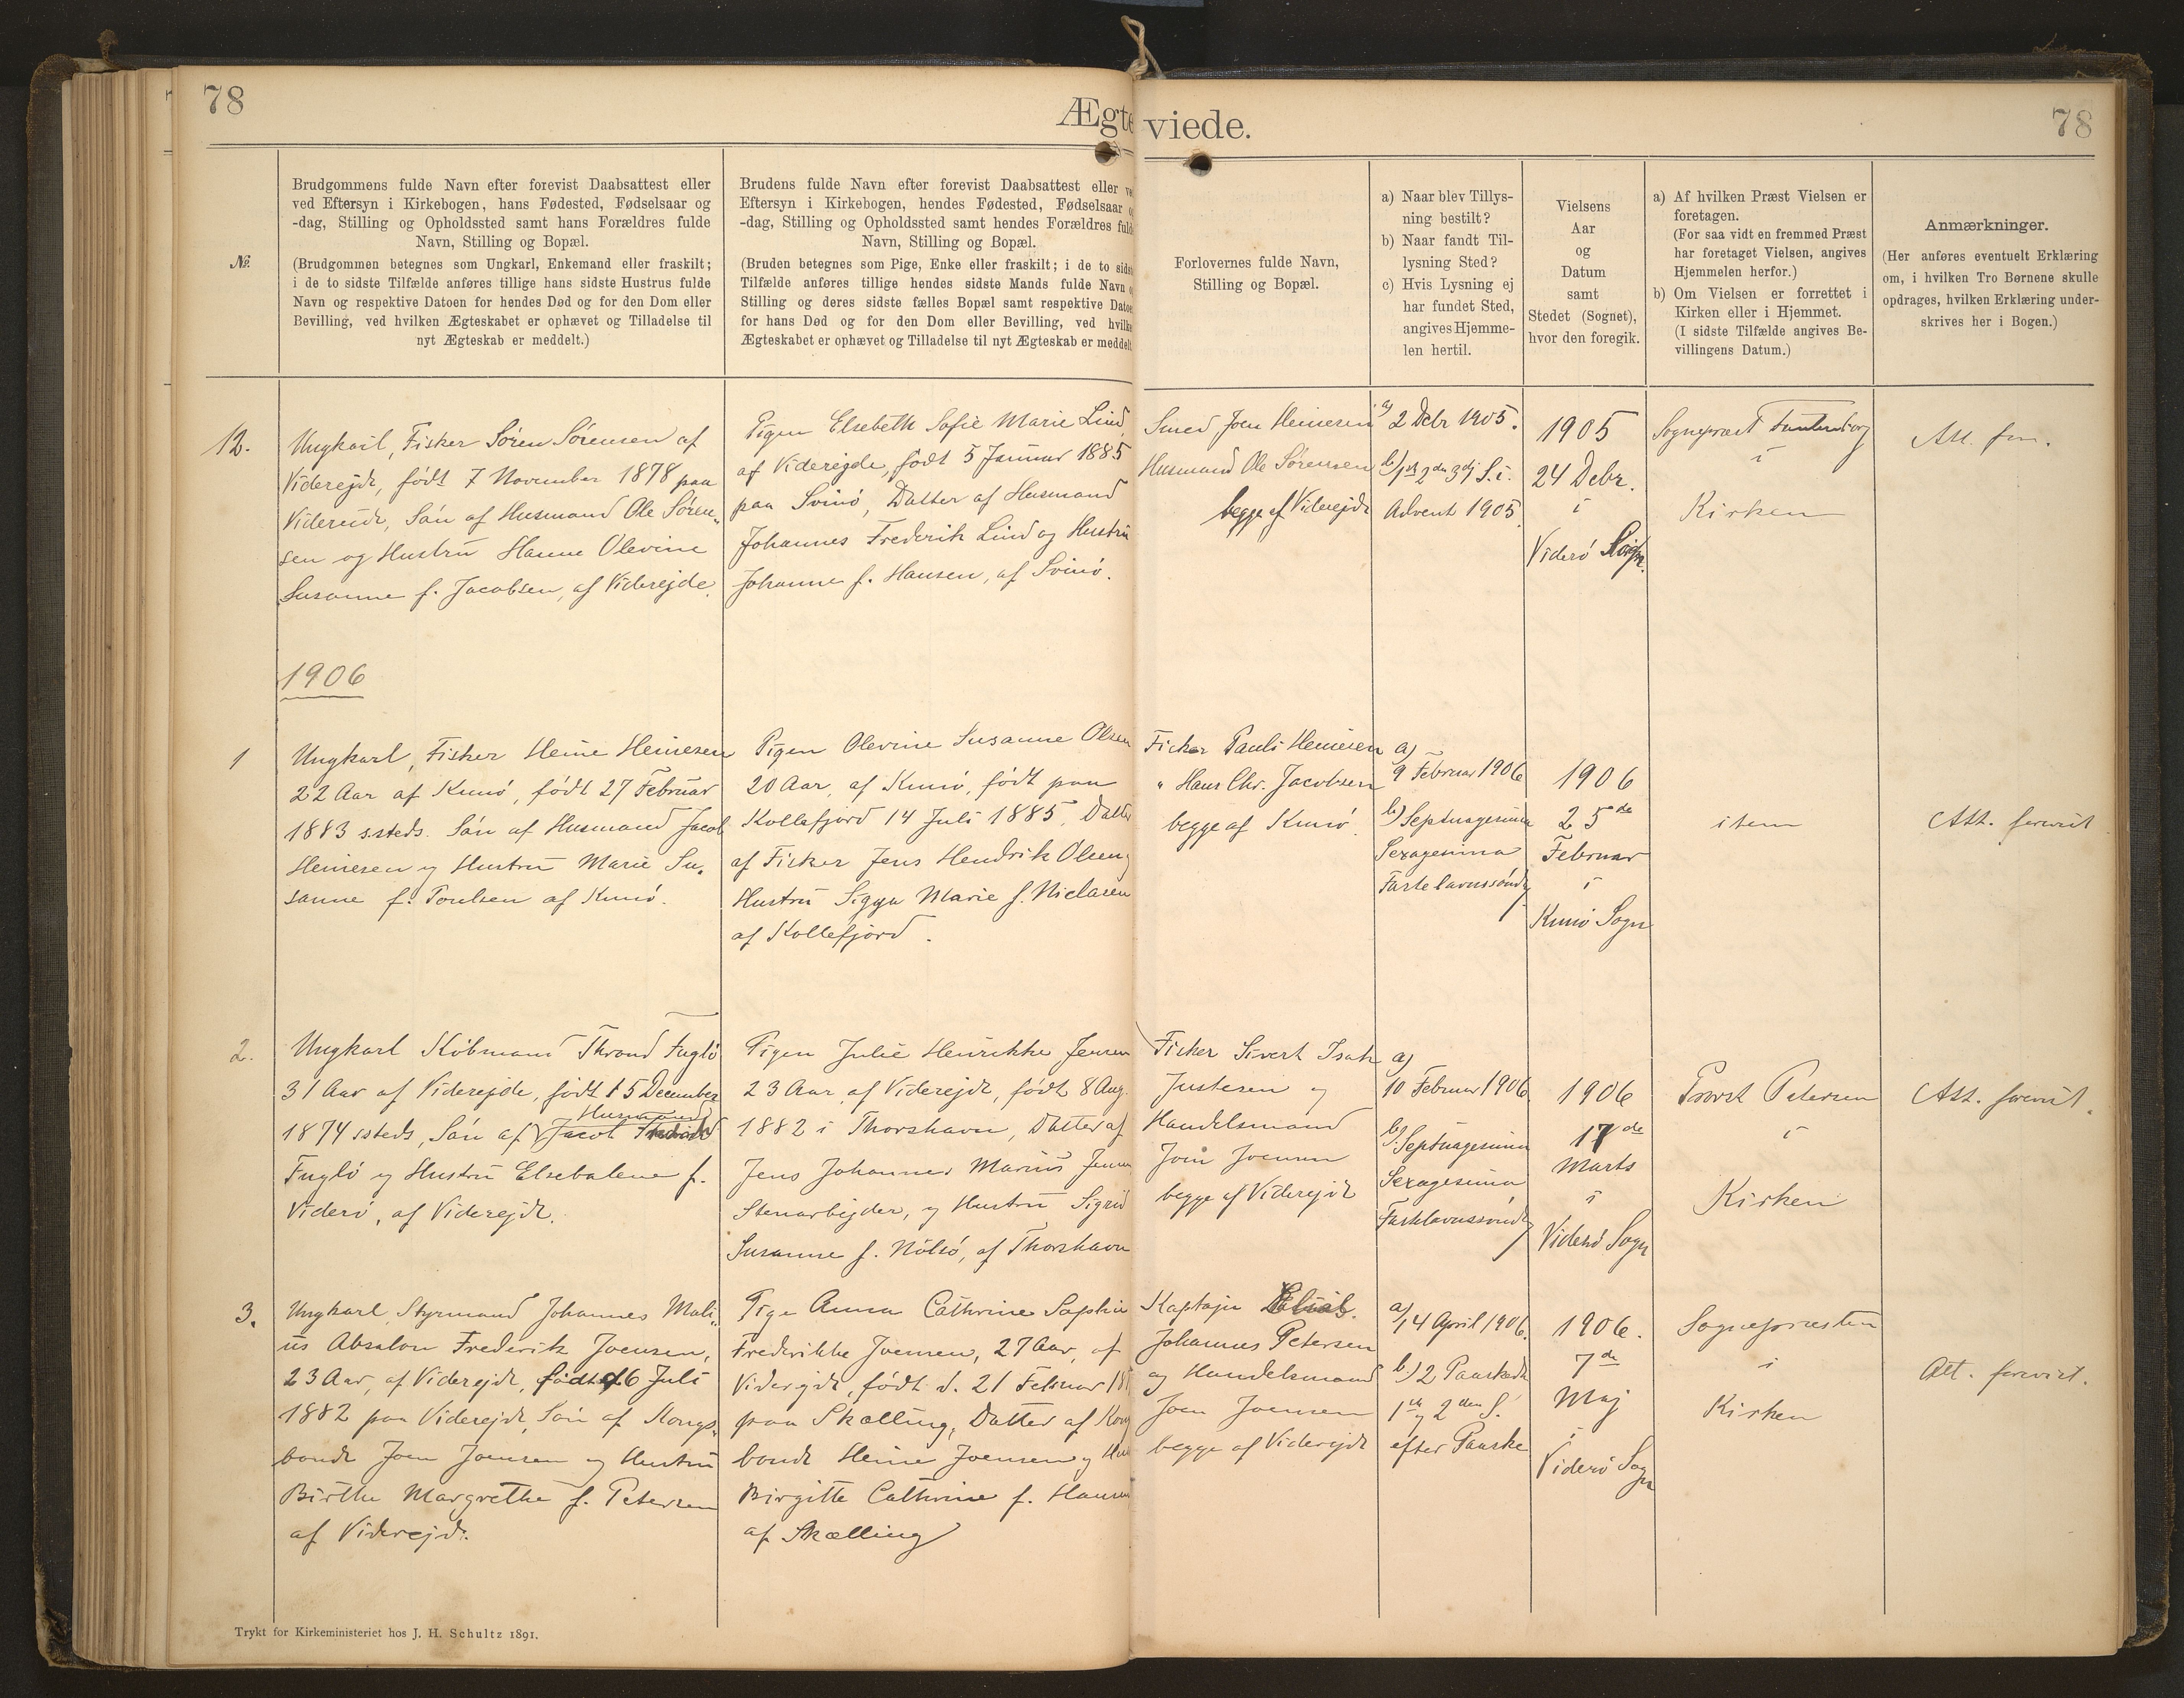 78
Ægte
viede.
78
№.
Brudgommens fulde Navn efter forevist Daabsattest eller
ved Eftersyn i Kirkebogen, hans Fødested, Fødselsaar og
-dag, Stilling og Opholdssted samt hans Forældres fulde
Navn, Stilling og Bopæl.
(Brudgommen betegnes som Ungkarl, Enkemand eller fraskilt;
i de to sidste Tilfælde anføres tillige hans sidste Hustrus fulde
Navn og respektive Datoen for hendes Død og for den Dom eller
Bevilling, ved hvilken Ægteskabet er ophævet og Tilladelse til
nyt Ægteskab er meddelt.)
Brudens fulde Navn efter forevist Daabsattest eller ve
Eftersyn i Kirkebogen, hendes Fødested, Fødselsaar o
-dag, Stilling og Opholdssted samt hendes Forældres fuld
Navn, Stilling og Bopæl.
(Bruden betegnes som Pige, Enke eller fraskilt; i de to sidst
Tilfælde anføres tillige hendes sidste Mands fulde Navn o
Stilling og deres sidste fælles Bopæl samt respektive Datoe
for hans Død og for den Dom eller Bevilling, ved hvilke
Ægteskabet er ophævet og Tilladelse til nyt Ægteskab er meddelt
Forlovernes fulde Navn,
Stilling og Bopæl.
a) Naar blev Tillys-
ning bestilt?
b) Naar fandt Til-
lysning Sted?
c) Hvis Lysning ej
har fundet Sted,
angives Hjemme-
len hertil.
Vielsens
Aar
og
Datum
samt
Stedet (Sognet),
hvor den foregik.
a) Af hvilken Præst Vielsen er
foretagen.
(For saa vidt en fremmed Præst
har foretaget Vielsen, angives
Hjemmelen herfor.)
b) Om Vielsen er forrettet i
Kirken eller i Hjemmet.
(I sidste Tilfælde angives Be-
villingens Datum.)
Anmærkninger.
(Her anføres eventuelt Erklæring
om, i hvilken Tro Børnene skulle
opdrages, hvilken Erklæring under-
skrives her i Bogen.)
12.
Ungkarl, Fisker Søren Sørensen af
Viderejde, født 7 November 1878 paa
Viderejde, Søn af Husmand Ole Søren-
sen og Hustru Hanne Olevine
Susanne f. Jacobsen, af Viderejde.
Pigen Elsebeth Sofie Marie Lind
af Viderejde, født 5 Januar 1885
paa Svinø, Datter af Husmand
Johannes Frederik Lind og Hustru
Johanne f. Hansen, af Svinø.
Smed Joen Heinesen
Husmand Ole Sørensen
begge af Viderejde
a) 2 Debr 1905.
b) 1st 2den 3dj S. i.
Advent 1905.
1905
24 Debr.
i
Viderø Sogn.
Sognepræst
i
Kirken
Att. for.
1906
1
Ungkarl, Fisker Heine Heinesen
22 Aar af Kunø, født 27 Februar
1883 s.steds. Søn af Husmand Jacob
Heinesen og Hustru Marie Su-
sanne f. Poulsen af Kunø.
Pigen Olevine Susanne Olsen
20 Aar, af Kunø, født paa
Kollefjord 14 Juli 1885, Datter
af Fisker Jens Hendrik Olsen og
Hustru Sigga Marie f. Niclasen
af Kollefjord.
Fisker Pauli Heinesen
" Hans Chr. Jacobsen
begge af Kunø.
a)
9 Februar 1906
b) Septuagesima
Sexagesima
Fastelavnssøndg
1906
25de
Februar
i
Kunø Sogn
item
Att. forevist
2.
Ungkarl Købmand Thrond Fuglø
31 Aar af Viderejde, født 15 December
Husmand
1874 ssteds, Søn af Jacob
Fuglø og Hustru Elsebalene f.
Viderø, af Viderejde.
Pigen Julie Henrikke Jensen
23 Aar, af Viderejde, født 8 Aug.
1882 i Thorshavn, Datter af
Jens Johannes Marius Jensen
Stenarbejder, og Hustru Sigrid
Susanne f. Nólsø, af Thorshavn
Fisker Sivert Isak
Justesen og
Handelsmand
Join Joensen
begge af Viderejde
a)
10 Februar 1906
b) Septuagesima
Sexagesima
Fastelavnssøndg
1906
17de
Marts
i
Viderø Sogn
Provst Petersen
i
Kirken
Att. forevist.
3.
Ungkarl, Styrmand Johannes Mali-
us Absalon Frederik Joensen,
23 Aar, af Viderejde, født d. 6 Juli
1882 paa Viderejde, Søn af Kongs-
bonde Joen Joensen og Hustru
Birthe Margrethe f. Petersen
af Viderejde.
Pige Anna Cathrine Sophie
Frederikke Joensen, 27 Aar, af
Viderejde, født d. 21 Februar 18
paa Skælling, Datter af Kong
bonde Heine Joensen og Hu
Birgitte Cathrine f. Hansen
af Skælling
Kaptajn
Johannes Petersen
og Handelsmand
Joen Joensen
begge af Viderejde
a) 14 April 1906.
b) 2 Paaskedg
1st og 2den S.
efter Paaske
1906.
7de
Maj
i
Viderø Sogn
Sognepræsten
i
Kirken
Att. forevist.
Trykt for Kirkeministeriet hos J. H. Schultz 1891.